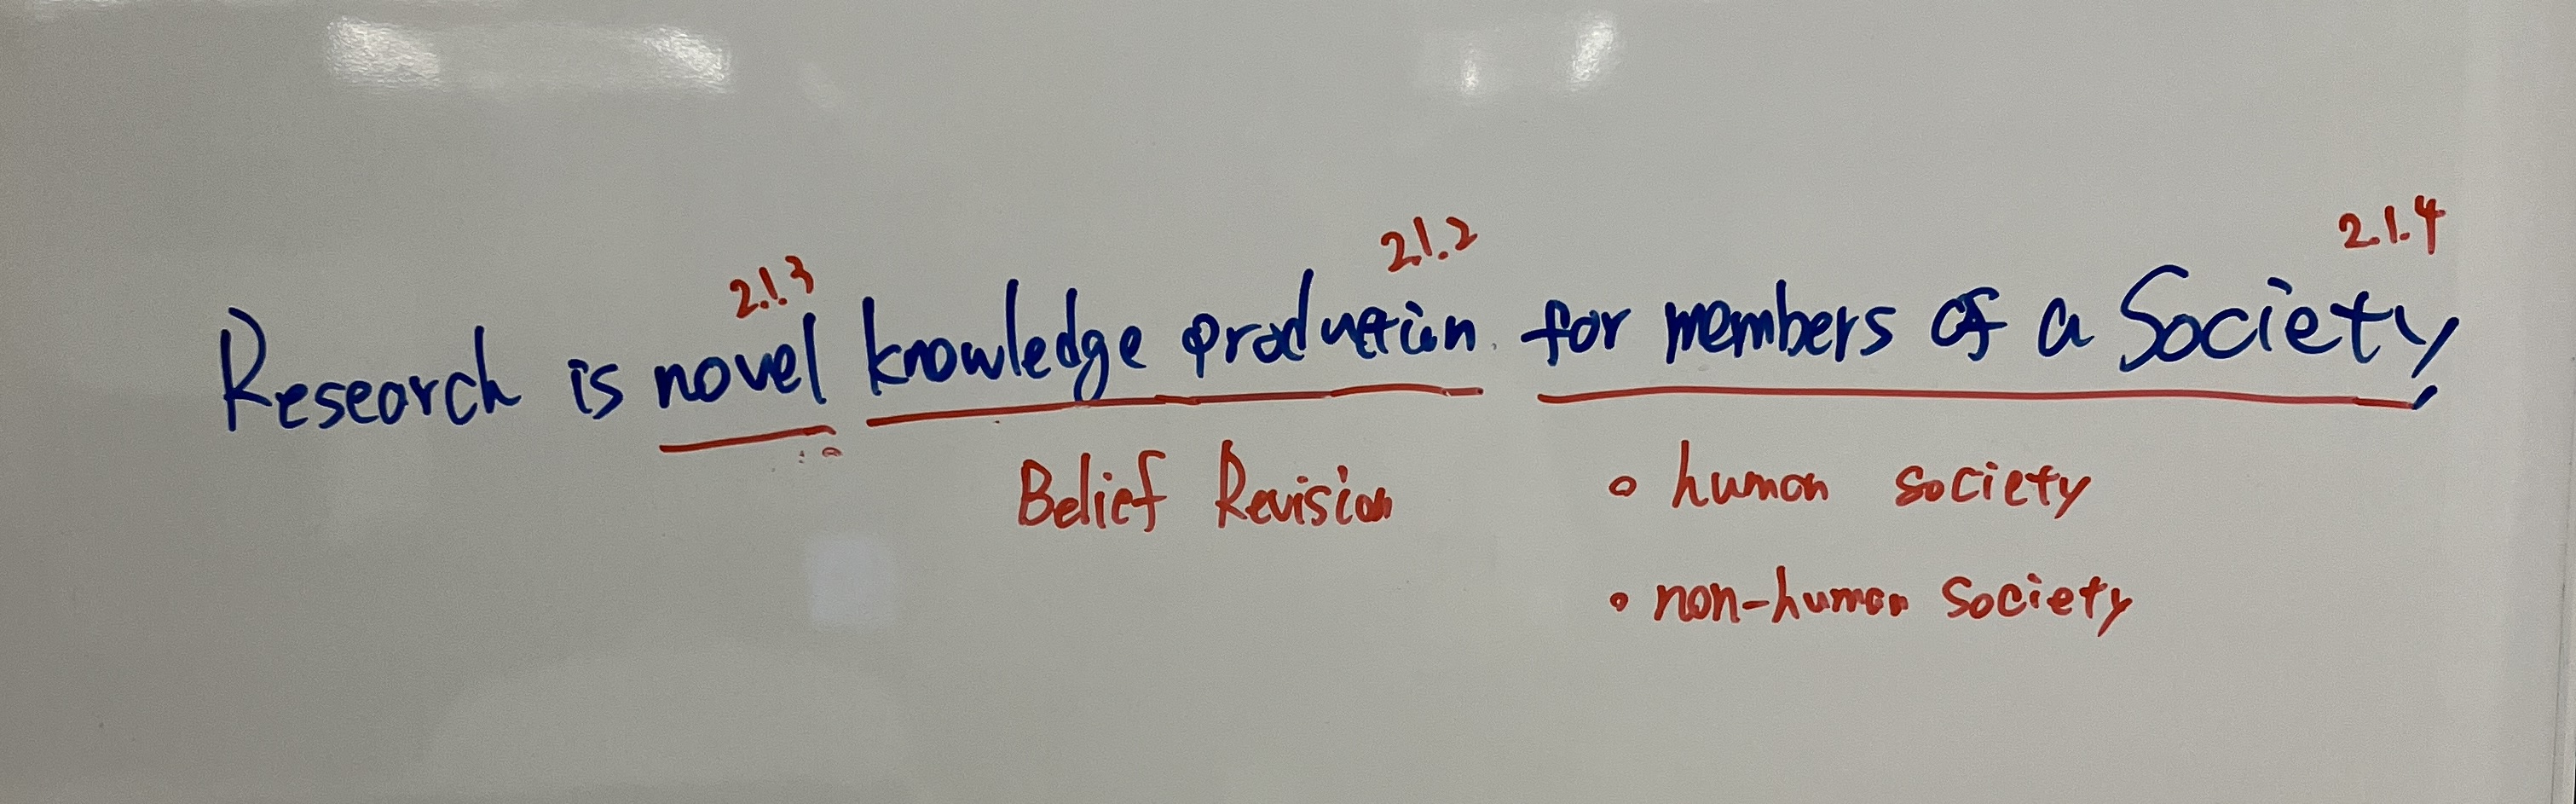 2.1.3 2.1.2 2.1.4
Research is novel knowledge production for members of a Society
Belief Revision
human society
non-human society